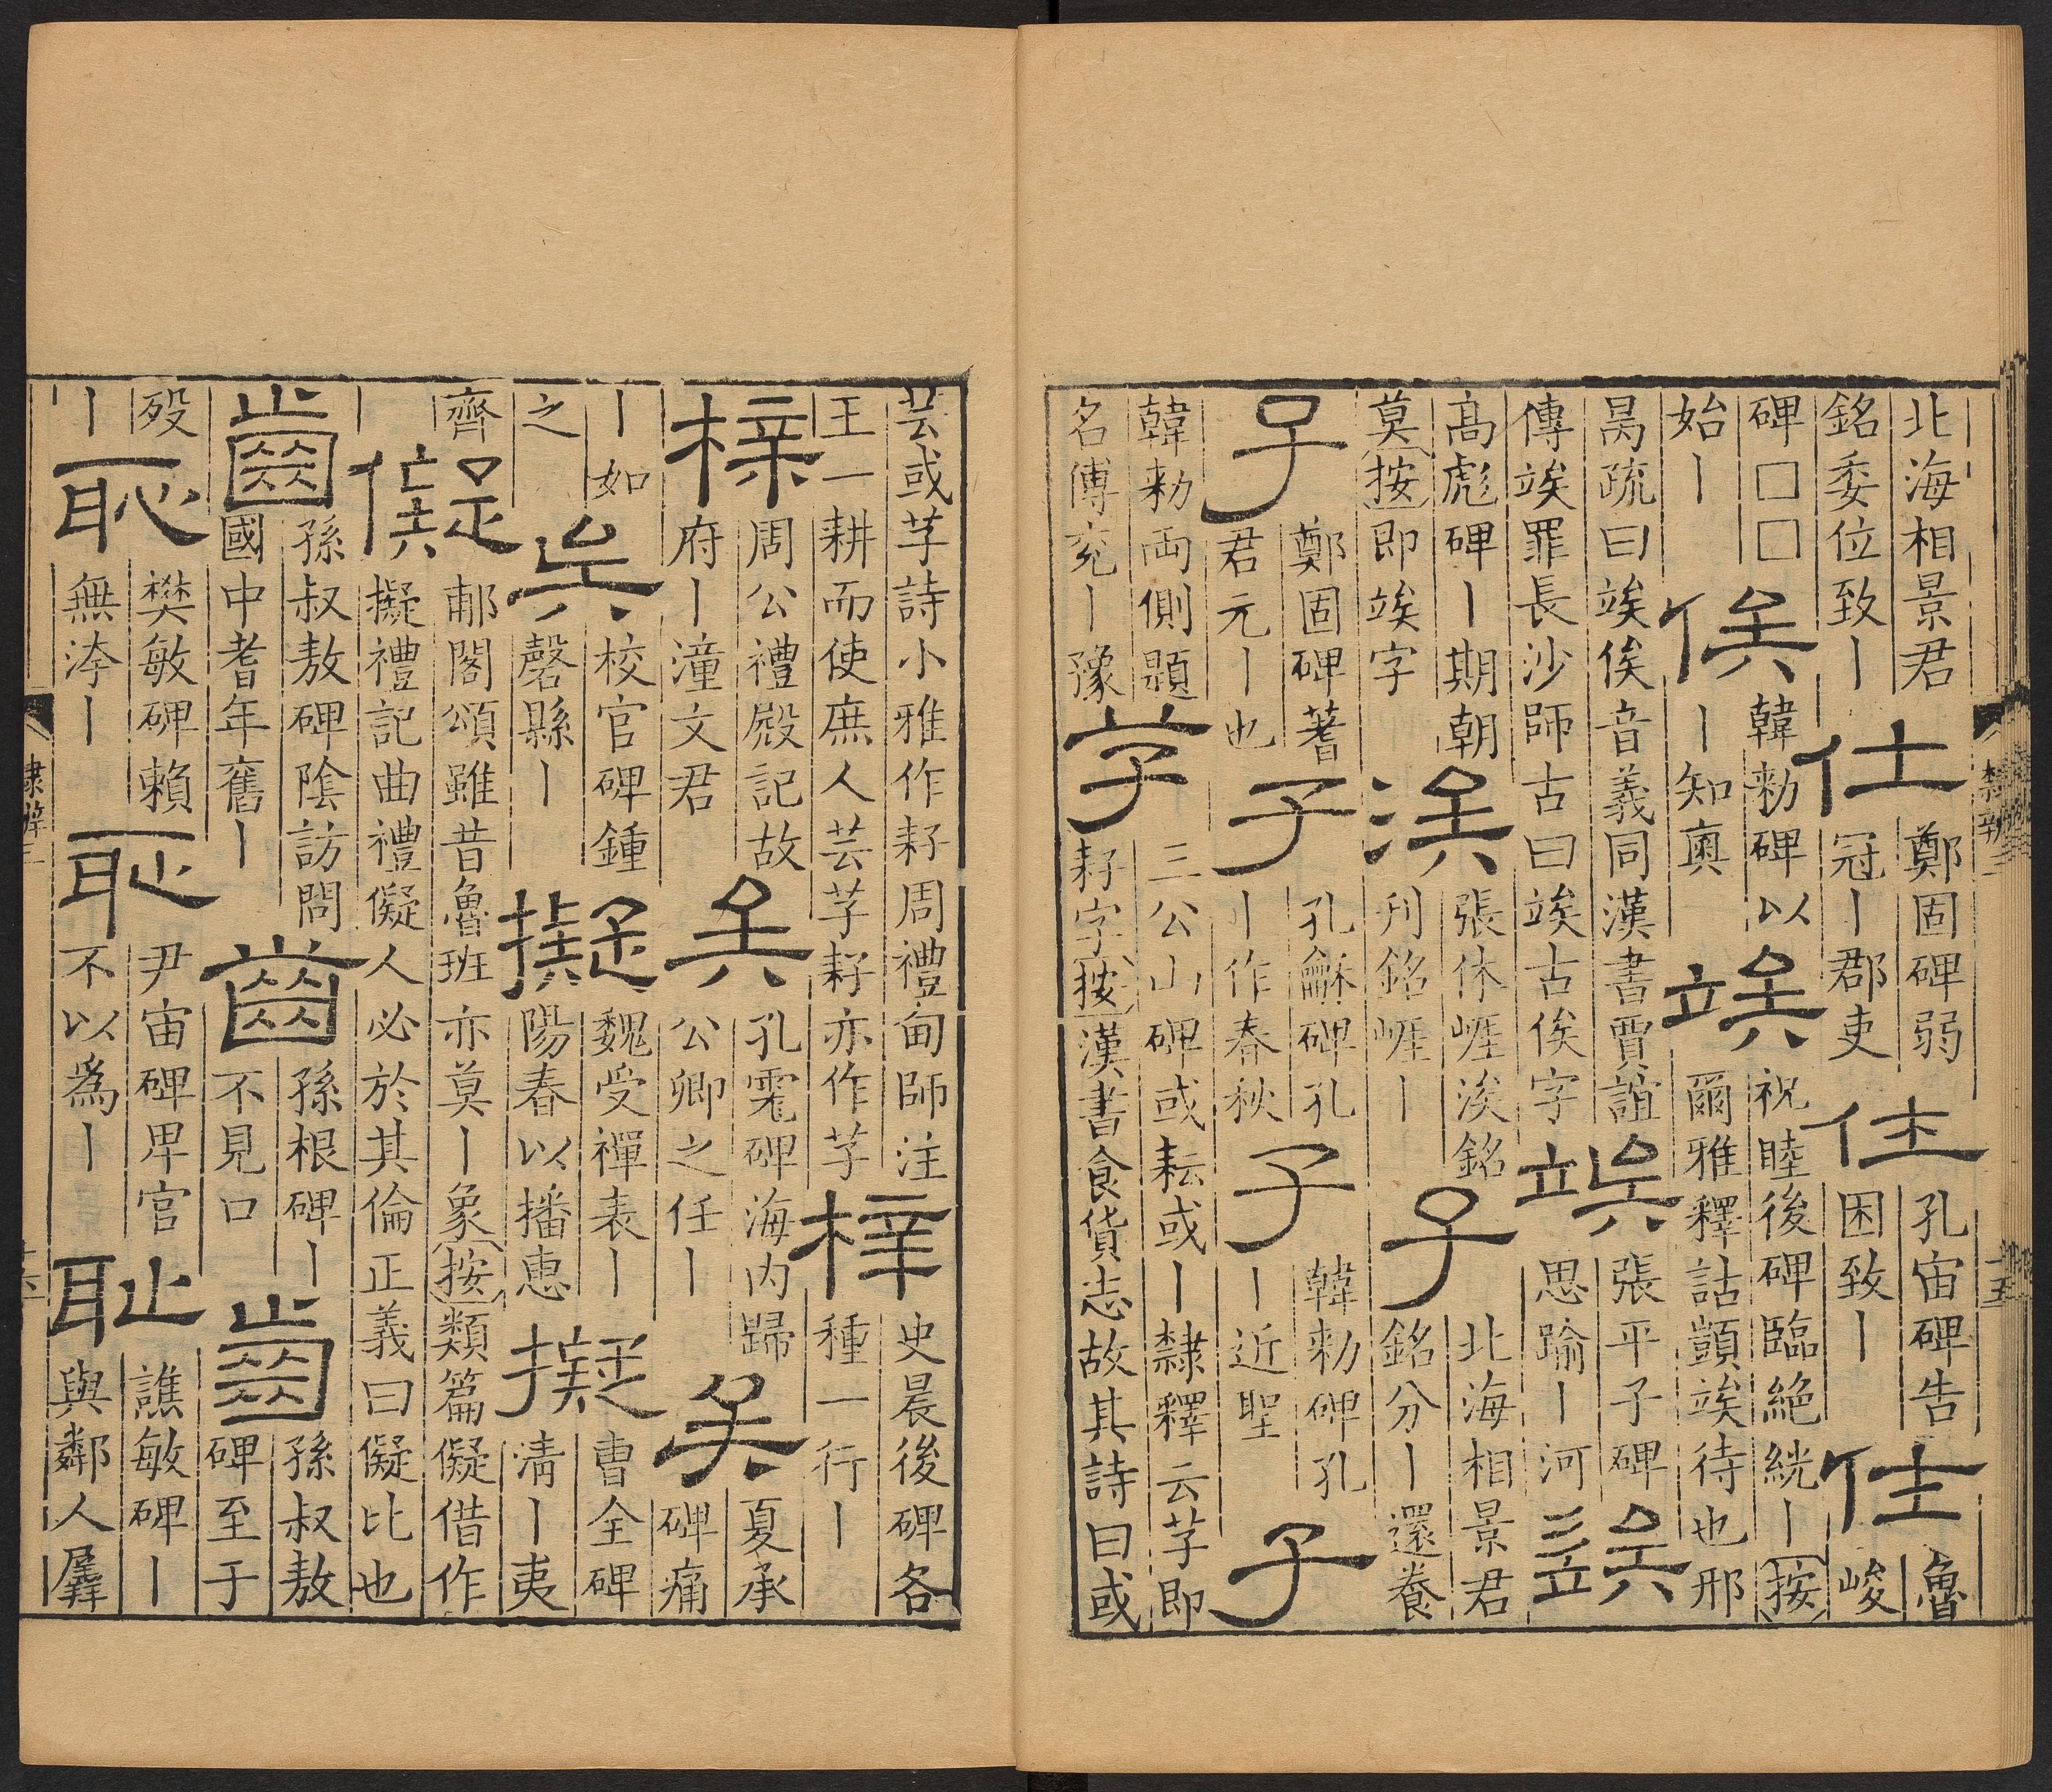 北海相景君
銘委位致丨
仕
鄭固碑弱
冠丨郡吏
仕
孔宙碑告
困致丨
仕
魯
峻
碑□□
始丨
俟
韓勑碑以
丨知奧
竢
祝睦後碑臨絕絖丨按
爾雅釋詁顗竢待也邢
昺疏曰竢俟音義同漢書賈誼
傳竢罪長沙師古曰竢古俟字
竢
張平子碑
思踰丨河
竢
高彪碑丨期朝
莫按即竢字
涘
張休崕涘銘
刊銘崕丨
子
北海相景君
銘分丨還養
子
鄭固碑蓍
君元丨也
子
孔龢碑孔
丨作春秋
子
韓勑碑孔
丨近聖
子
韓勑両側題
名傅兖丨豫
芓
三公山碑或耘或丨隸釋云芓即
耔字按漢書食貨志故其詩曰或
隸辨三
十五
芸或芓詩小雅作耔周禮甸師注
王一耕而使庶人芸芓耔亦作芓
梓
史晨後碑各
種一行丨
梓
周公禮殿記故
府丨潼文君
矣
孔碑海内歸
公卿之任丨
矣
夏承
碑痛
丨如
之
矣
校官碑鍾
磬縣丨
擬
魏受禪表丨
陽春以播惠
擬
曹全碑
清丨夷
齊
丨
儗
郙閣頌雖昔魯班亦莫丨象按類篇儗借作
擬禮記曲禮儗人必於其倫正義曰儗比也
齒
孫叔敖碑陰訪問
國中耆年舊丨
齒
孫根碑丨
不見口
齒
孫叔敖
碑至于
歿
丨
恥
樊敏碑賴
無洿丨
恥
尹宙碑卑官
不以爲丨
耻
譙敏碑丨
與鄰人羼
隸辨三
十六